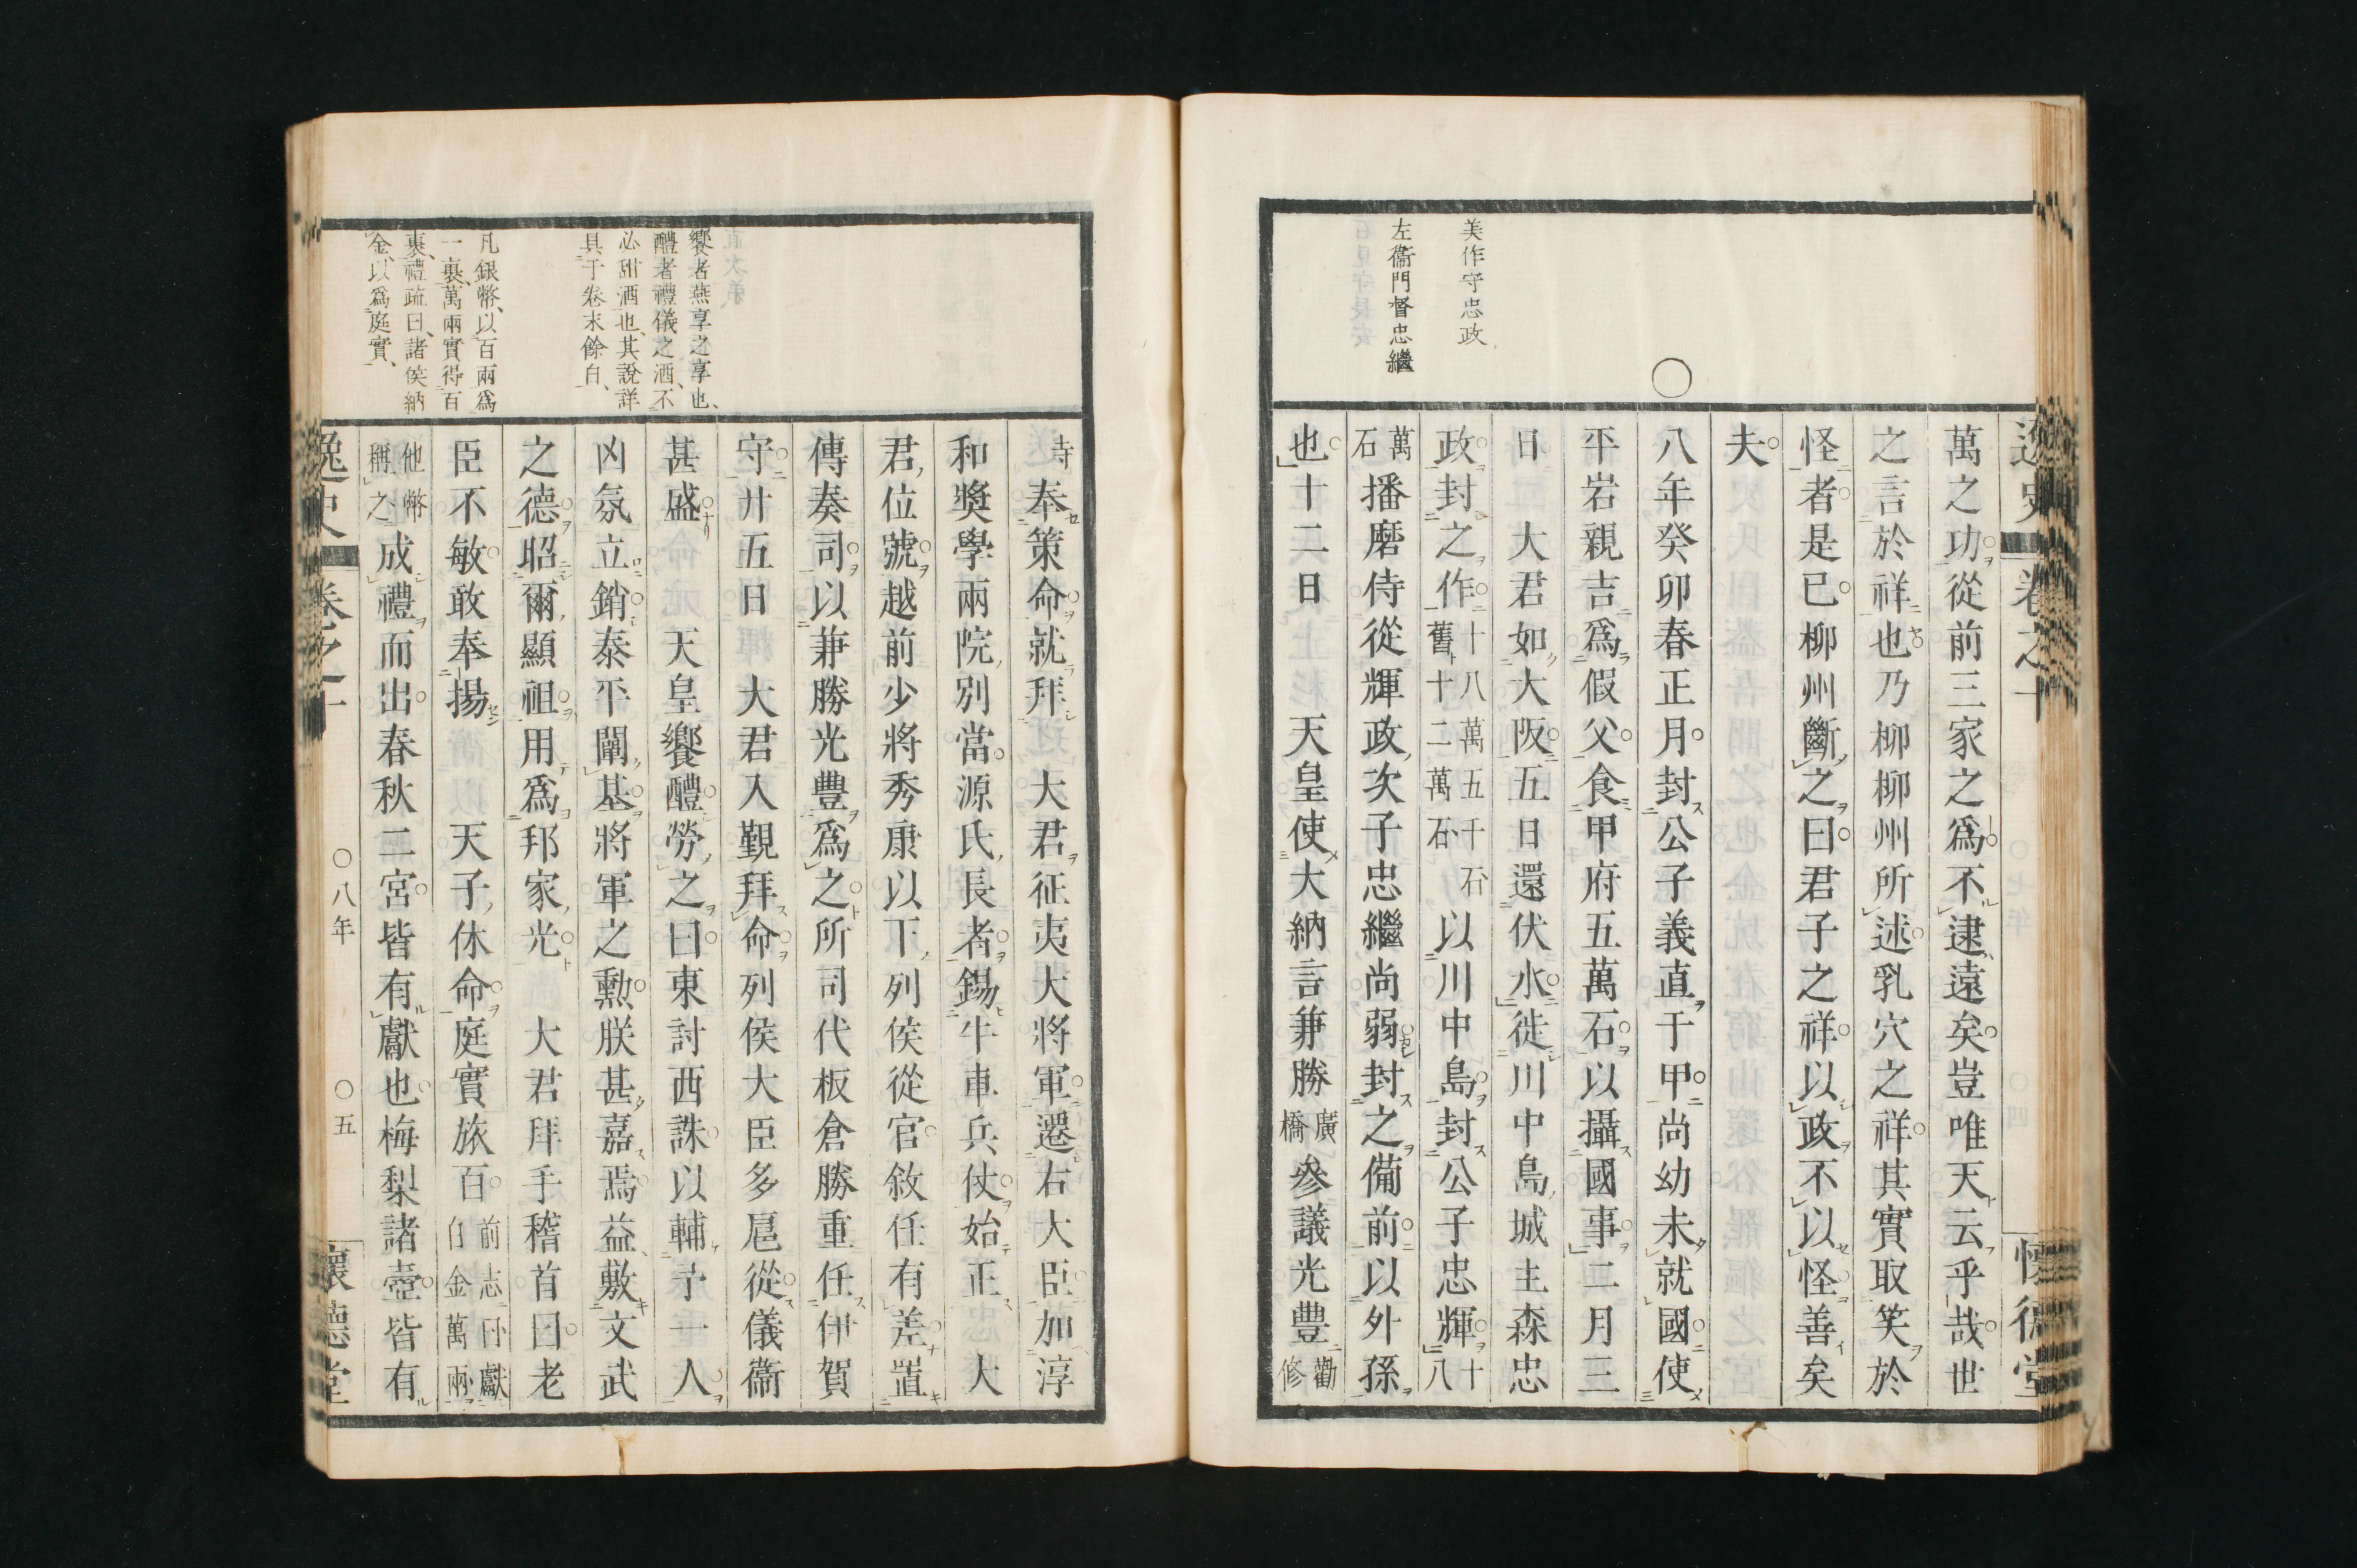 美作守忠政
左衞門督忠繼
萬之功從前三家之爲不逮遠矣豈唯天云乎哉世
之言於祥也乃柳柳州所述乳穴之祥其實取笑於
怪者是已柳州斷之曰君子之祥以政不以怪善矣
夫
八年癸卯春正月封公子義直于甲尚幼未就國使
平岩親吉爲假父食甲府五萬石以攝國事二月三
日　大君如大阪五日還伏水徙川中島城主森忠
政封之作十八萬五千石舊十二萬石以川中島封公子忠輝十八
萬石播磨侍從輝政次子忠繼尚弱封之備前以外孫
也十二日　天皇使大納言兼勝廣橋參議光豐勸修
饗者燕享之享也、
醴者禮儀之酒、不
必甜酒也、其說詳
具于卷末餘白、
凡銀幣、以百兩爲
一裹、萬兩實得百
裹、禮疏曰、諸侯納
金、以爲庭實、
寺奉策命就拜　大君征夷大將軍遷右大臣加淳
和奬學兩院別當源氏長者錫牛車兵仗始正　大
君位號越前少將秀康以下列侯從官敘任有差置
傳奏司以兼勝光豐爲之所司代板倉勝重任伊賀
守廿五日　大君入覲拜命列侯大臣多扈從儀衞
甚盛　天皇饗醴勞之曰東討西誅以輔予一人
凶氛立銷泰平闡基將軍之勳朕甚嘉焉益敷文武
之德昭爾顯祖用爲邦家光　大君拜手稽首曰老
臣不敏敢奉揚　天子休命庭實旅百前志曰獻白金萬兩
他幣稱之成禮而出春秋二宮皆有獻也梅梨諸壼皆有
逸史　卷之十　〇八年　〇五　懷德堂